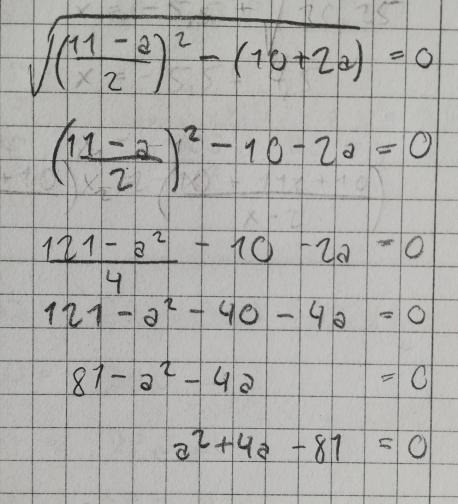 √((11 - a)/2)² - (10 + 2a) = 0
((11 - a)/2)² - 10 - 2a = 0
(121 - a²)/4 - 10 - 2a = 0
121 - a² - 40 - 4a = 0
81 - a² - 4a = 0
a² + 4a - 81 = 0